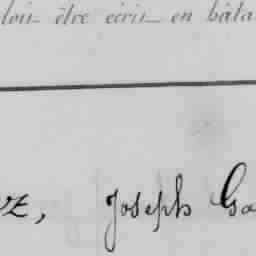 doit être écrit en bâta
Joseph Ga